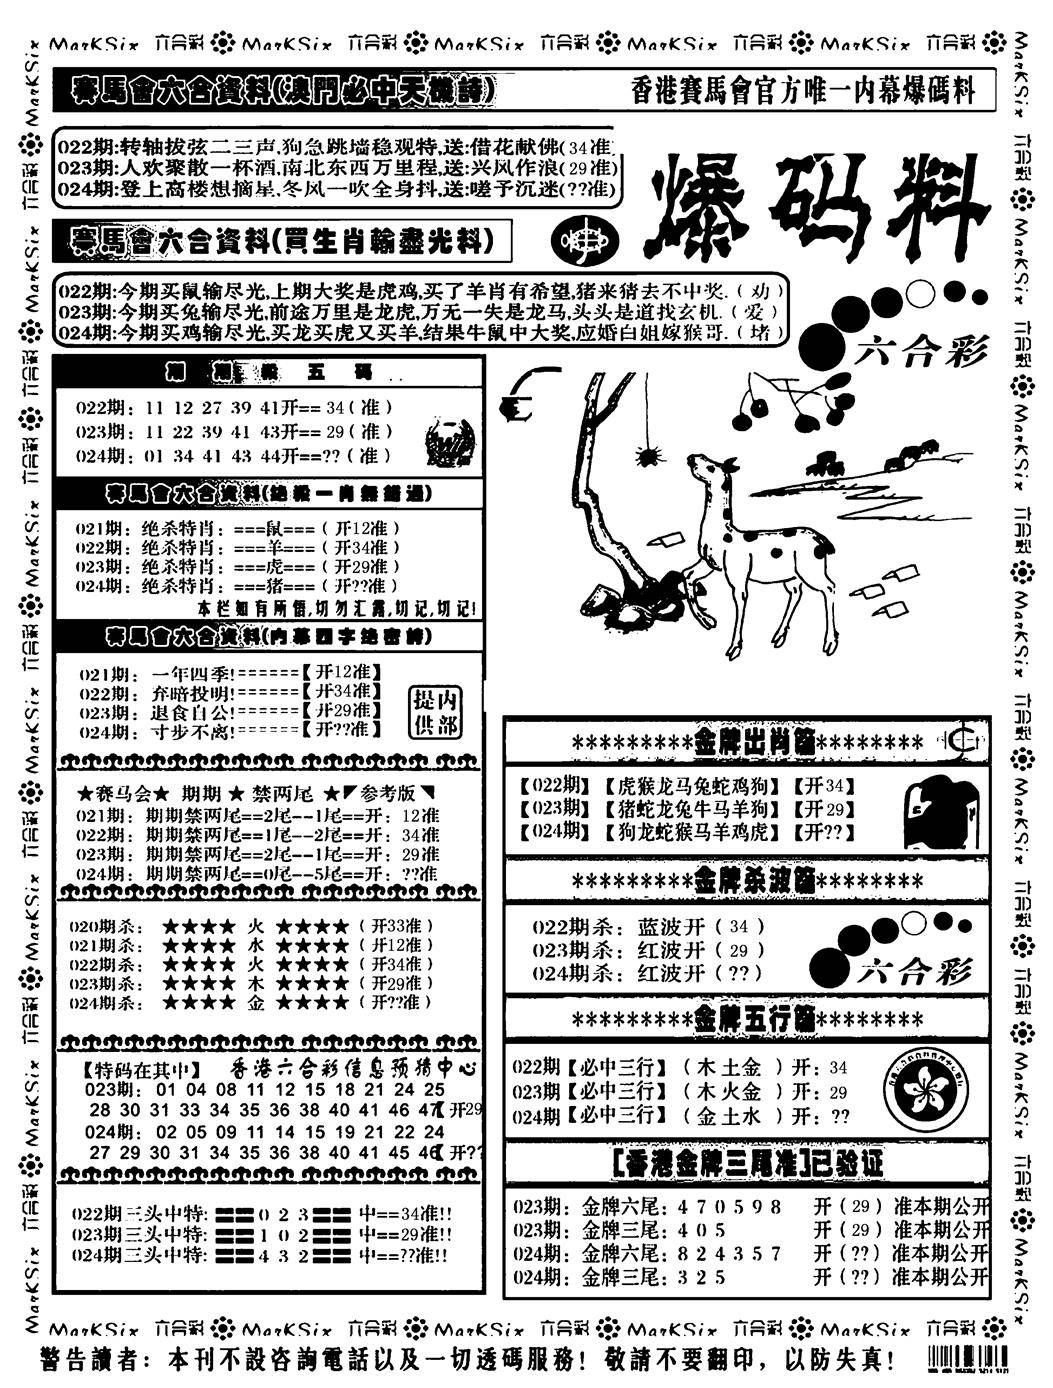 MarKSix 六合彩 MarKSix 六合彩 MarKSix 六合彩 MarKSix 六合彩 MarKSix 六合彩
賽馬會六合資料(澳門必中天機詩)
香港賽馬會官方唯一内幕爆碼料
022期:转轴拔弦二三声,狗急跳墙稳观特,送:借花献佛(34准)
023期:人欢聚散一杯酒,南北东西万里程,送:兴风作浪(29准)
024期:登上高楼想摘星,冬风一吹全身抖,送:嗟予沉迷(??准)
爆码料
賽馬會六合資料(買生肖輸盡光料)
022期:今期买鼠输尽光,上期大奖是虎鸡,买了羊肖有希望,猪来猜去不中奖.(劝)
023期:今期买兔输尽光,前途万里是龙虎,万无一失是龙马,头头是道找玄机.(爱)
024期:今期买鸡输尽光,买龙买虎又买羊,结果牛鼠中大奖,应婚白姐嫁猴哥.(堵)
六合彩
期期殺五碼
022期: 11 12 27 39 41开== 34(准)
023期: 11 22 39 41 43开== 29(准)
024期: 01 34 41 43 44开==??(准)
賽馬會六合資料(绝殺一肖無錯過)
021期: 绝杀特肖: ===鼠===(开12准)
022期: 绝杀特肖: ===羊===(开34准)
023期: 绝杀特肖: ===虎===(开29准)
024期: 绝杀特肖: ===猪===(开??准)
本栏如有所悟,切勿汇露,切记,切记!
賽馬會六合資料(内幕四字绝密詩)
021期: 一年四季!======【开12准】
022期: 弃暗投明!======【开34准】
023期: 退食自公!======【开29准】
024期: 寸步不离!======【开??准】
提内
供部
★赛马会★ 期期 ★ 禁两尾 ★◤参考版◥
021期: 期期禁两尾==2尾--1尾==开: 12准
022期: 期期禁两尾==1尾--2尾==开: 34准
023期: 期期禁两尾==2尾--1尾==开: 29准
024期: 期期禁两尾==0尾--5尾==开: ??准
020期杀: ★★★★ 火 ★★★★(开33准)
021期杀: ★★★★ 水 ★★★★(开12准)
022期杀: ★★★★ 火 ★★★★(开34准)
023期杀: ★★★★ 木 ★★★★(开29准)
024期杀: ★★★★ 金 ★★★★(开??准)
【特码在其中】 香港六合彩信息预猜中心
023期: 01 04 08 11 12 15 18 21 24 25
28 30 31 33 34 35 36 38 40 41 46 47【开29
024期: 02 05 09 11 14 15 19 21 22 24
27 29 30 31 34 35 36 38 40 41 45 46【开??
022期三头中特: 〓〓0 2 3〓〓 中==34准!!
023期三头中特: 〓〓1 0 2〓〓 中==29准!!
024期三头中特: 〓〓4 3 2〓〓 中==??准!!
*********金牌出肖篇********
【022期】【虎猴龙马兔蛇鸡狗】【开34】
【023期】【猪蛇龙兔牛马羊狗】【开29】
【024期】【狗龙蛇猴马羊鸡虎】【开??】
*********金牌杀波篇********
022期杀: 蓝波开(34)
023期杀: 红波开(29)
024期杀: 红波开(??)
六合彩
*********金牌五行篇********
022期【必中三行】(木土金)开: 34
023期【必中三行】(木火金)开: 29
024期【必中三行】(金土水)开: ??
[香港金牌三尾准]已验证
023期: 金牌六尾: 4 7 0 5 9 8 开(29)准本期公开
023期: 金牌三尾: 4 0 5 开(29)准本期公开
024期: 金牌六尾: 8 2 4 3 5 7 开(??)准本期公开
024期: 金牌三尾: 3 2 5 开(??)准本期公开
MarKSix 六合彩 MarKSix 六合彩 MarKSix 六合彩 MarKSix 六合彩 MarKSix 六合彩
警告讀者: 本刊不設咨詢電話以及一切透碼服務! 敬請不要翻印, 以防失真!